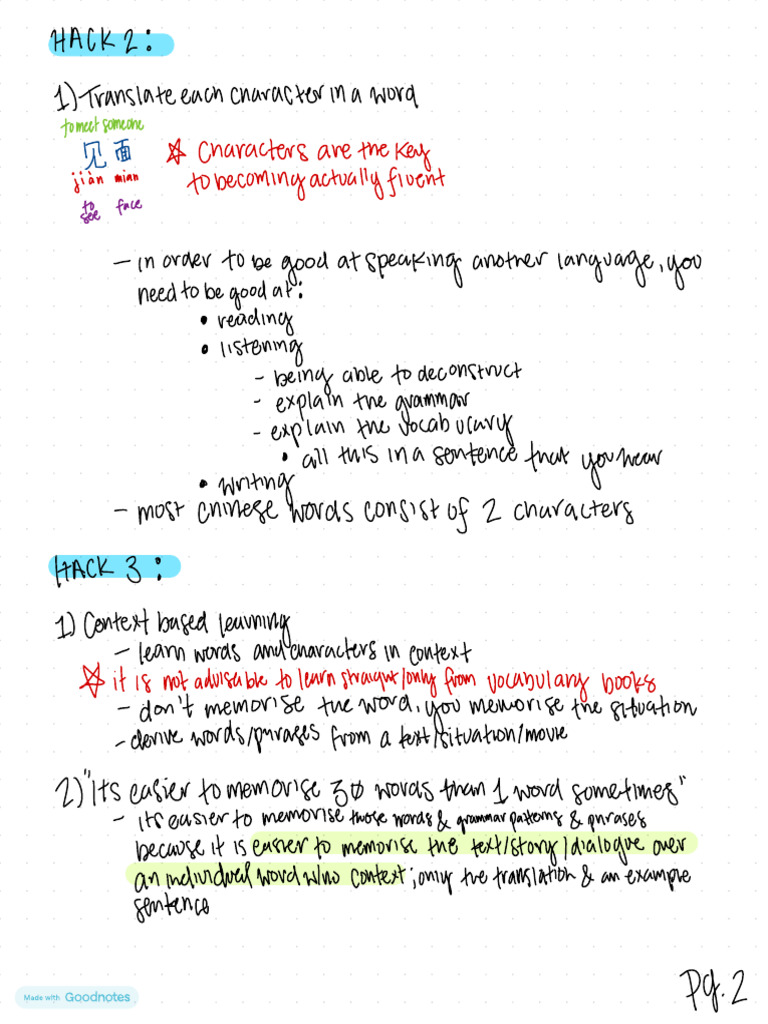 HACK 2:
1) Translate each character in a word
to meet someone
见 面
jiàn mian
to see face
☆ Characters are the key
to becoming actually fluent
- in order to be good at speaking another language, you
need to be good at:
• reading
• listening
- being able to deconstruct
- explain the grammar
- explain the vocabulary
• all this in a sentence that you hear
• writing
- most chinese words consist of 2 characters
HACK 3:
1) Context based learning
- learn words and characters in context
☆ it is not advisable to learn straight/only from vocabulary books
- don't memorise the word, you memorise the situation
- derive words/phrases from a text/situation/movie
2) "Its easier to memorise 30 words than 1 word sometimes"
- its easier to memorise those words & grammar patterns & phrases
because it is easier to memorise the text/story/dialogue over
an individual word w/no context; only the translation & an example
sentence
Made with Goodnotes
pg. 2